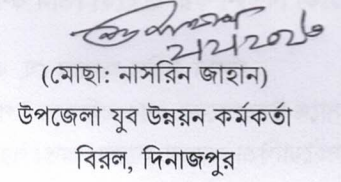 ২১/২/২০২৩
(মোছা: নাসরিন জাহান)
উপজেলা যুব উন্নয়ন কর্মকর্তা
বিরল, দিনাজপুর